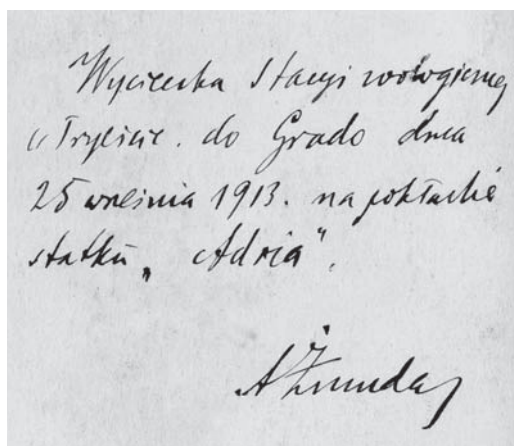 Wycieczka Stacyi zoologicznej
w Tryeście. do Grado dnia
25 września 1913. na pokładzie
statku „Adria”.
A Żmuda